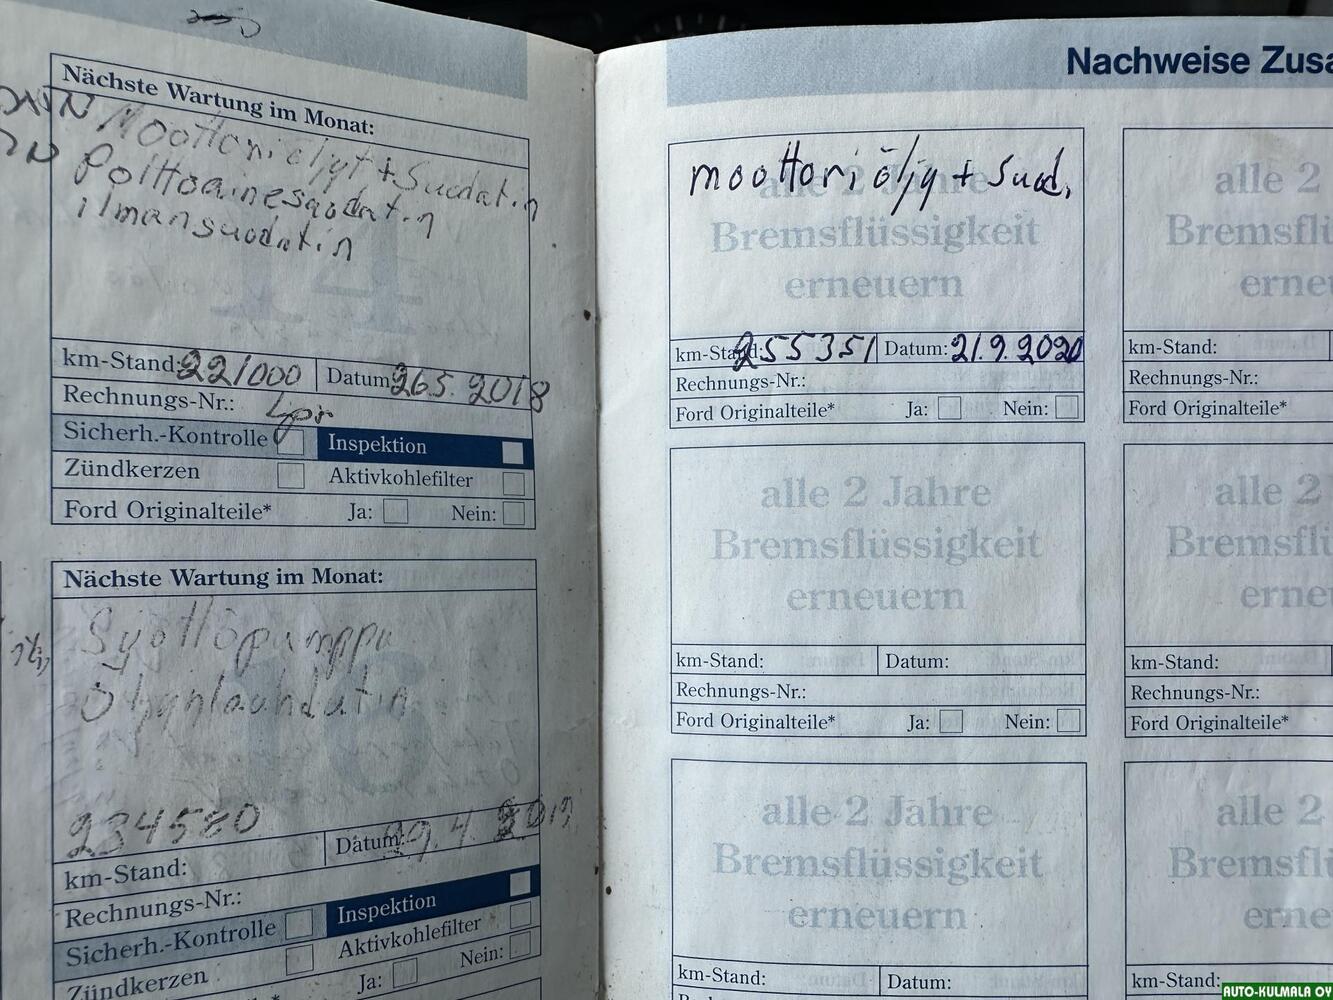 Nächste Wartung im Monat:
Moottoriöljyt + Suodatin
Polttoainesuodatin
ilmansuodatin
14
km-Stand: 221000 Datum: 26.5.2018
Rechnungs-Nr.: Lpr
Sicherh.-Kontrolle Inspektion
Zündkerzen Aktivkohlefilter
Ford Originalteile* Ja: Nein:
Nächste Wartung im Monat:
Syöttöpumppu
16
234580
km-Stand: Datum: 29.4.2019
Rechnungs-Nr.:
Sicherh.-Kontrolle Inspektion
Zündkerzen Aktivkohlefilter
Ja: Nein:
Nachweise Zusa
moottoriöljy + Suod.
alle 2 Jahre
Bremsflüssigkeit
erneuern
km-Stand: 255351 Datum: 21.9.2020
Rechnungs-Nr.:
Ford Originalteile* Ja: Nein:
alle 2 Jahre
Bremsflüssigkeit
erneuern
km-Stand: Datum:
Rechnungs-Nr.:
Ford Originalteile* Ja: Nein:
alle 2 Jahre
Bremsflüssigkeit
erneuern
km-Stand: Datum:
alle 2
Bremsflü
erne
km-Stand:
Rechnungs-Nr.:
Ford Originalteile*
alle 2
Bremsflü
erne
km-Stand:
Rechnungs-Nr.:
Ford Originalteile*
alle 2
Bremsflü
erne
km-Stand:
AUTO-KULMALA OY